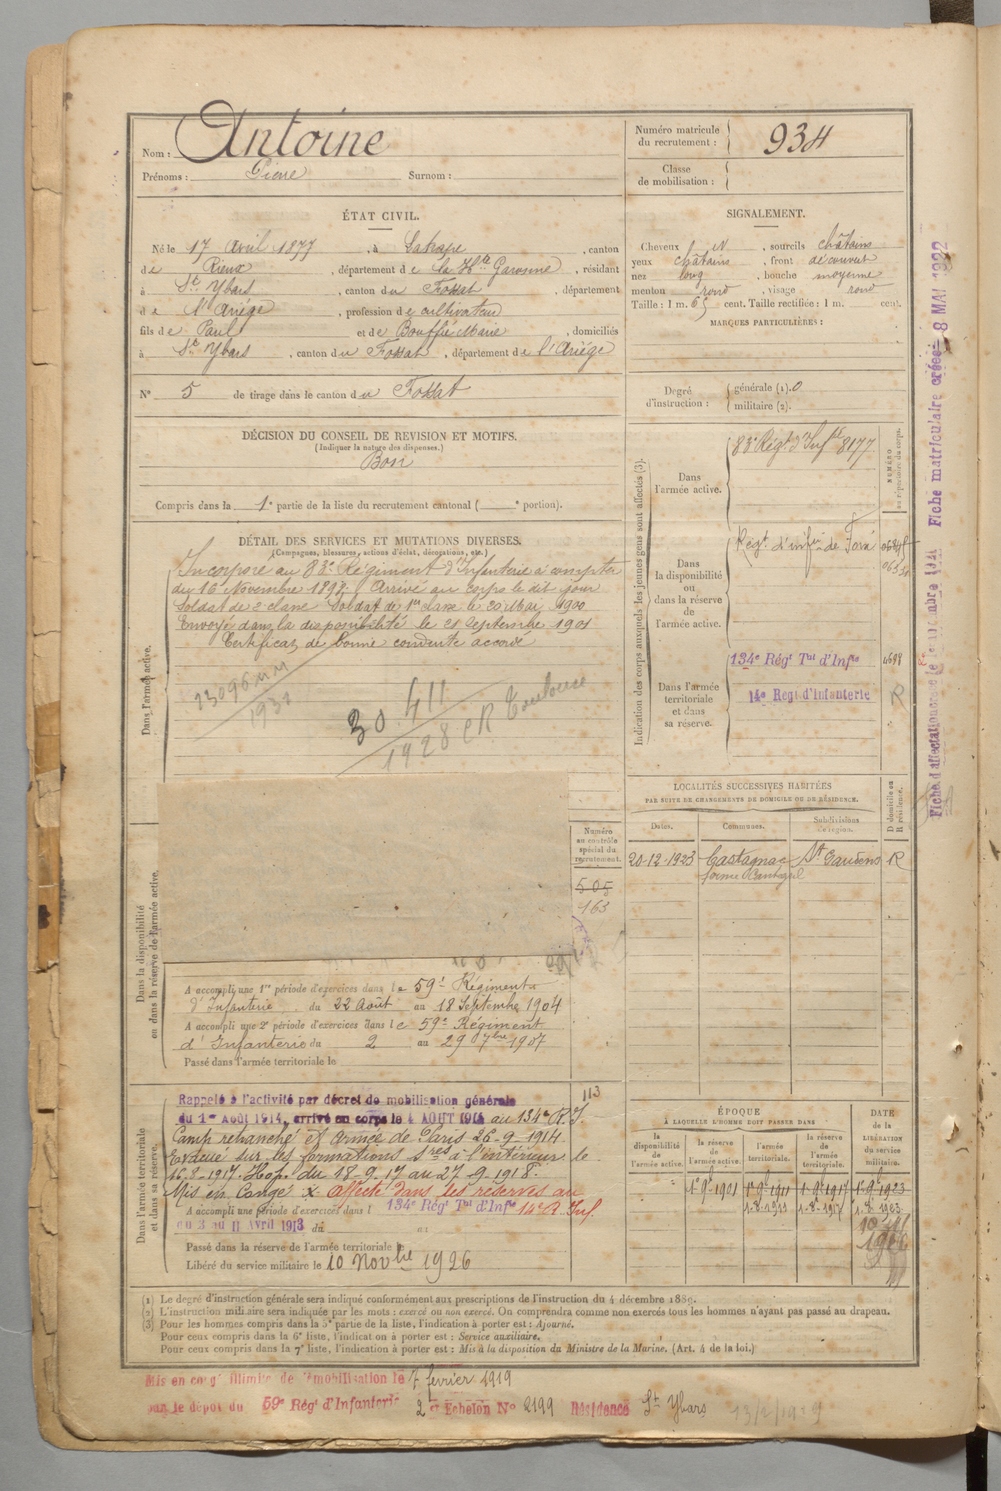 Nom : Antoine
Prénoms : Pierre Surnom :
Numéro matricule du recrutement : 934
Classe de mobilisation :
ÉTAT CIVIL.
Né le 17 Avril 1877, à Latrape, canton
de Rieux, département de la Hte Garonne, résidant
à St Ybars, canton du Fossat, département
de l'Ariège, profession de cultivateur
fils de Paul et de Bouffié Marie, domiciliés
à St Ybars, canton du Fossat, département de l'Ariège
N° 5 de tirage dans le canton du Fossat
SIGNALEMENT.
Cheveux N, sourcils châtains
yeux châtains, front découvert
nez long, bouche moyenne
menton rond, visage rond
Taille : 1 m. 65 cent. Taille rectifiée : 1 m. cent.
MARQUES PARTICULIÈRES :
Degré d'instruction : générale (1). 0
militaire (2).
DÉCISION DU CONSEIL DE REVISION ET MOTIFS.
(Indiquer la nature des dispenses.)
Bon
Compris dans la 1e partie de la liste du recrutement cantonal ( e portion).
DÉTAIL DES SERVICES ET MUTATIONS DIVERSES.
(Campagnes, blessures, actions d'éclat, décorations, etc.)
Dans l'armée active.
Incorporé au 83e Régiment d'Infanterie à compter
du 16 Novembre 1898. Arrivé au corps le dit jour
Soldat de 2e classe Soldat de 1re classe le 20 Mai 1900
Envoyé dans la disponibilité le 21 Septembre 1901
Certificat de bonne conduite accordé
1931
30.411
1928 CR Toulouse
Indication des corps auxquels les jeunes gens sont affectés (3).
NUMÉRO au répertoire du corps.
Dans l'armée active.
83e Régt d'Infte 8177
Dans la disponibilité ou dans la réserve de l'armée active.
Régt d'infie de Foix
Dans l'armée territoriale et dans sa réserve.
134e Régt Tal d'Infie
14e Regt d'Infanterie
R
Fiche d'affectation Fiche matriculaire créée 8 MAI 1922
LOCALITÉS SUCCESSIVES HABITÉES
PAR SUITE DE CHANGEMENTS DE DOMICILE OU DE RÉSIDENCE.
Dates. Communes. Subdivisions de région. D domicile ou R résidence.
20-12-1923 Castagnac St Gaudens R
Dans la disponibilité ou dans la réserve de l'armée active.
Numéro au contrôle spécial du recrutement.
505
163
A accompli une 1re période d'exercices dans le 59e Régiment
d'Infanterie du 22 Août au 18 Septembre 1904
A accompli une 2e période d'exercices dans le 59e Régiment
d'Infanterie du 2 au 29 7bre 1907
Passé dans l'armée territoriale le
Dans l'armée territoriale et dans sa réserve.
113
Rappelé à l'activité par décret de mobilisation générale
du 1er Août 1914, arrivé au corps le 4 AOUT 1914 au 134e R. I.
Camp retranché et armée de Paris 26-9-1914
Évacué sur les formations sres à l'intérieur le
16-8-1917. Hop. du 18-9-17 au 27-9-1918.
Mis en Congé x affecté dans les réserves au
A accompli une période d'exercices dans l 134e Régt Tal d'Infie 14e R. Inf.
du 3 au 11 Avril 1913 du au
Passé dans la réserve de l'armée territoriale le
Libéré du service militaire le 10 Novbre 1926
ÉPOQUE
À LAQUELLE L'HOMME DOIT PASSER DANS
DATE de la LIBÉRATION du service militaire.
la disponibilité de l'armée active. la réserve de l'armée active. l'armée territoriale. la réserve de l'armée territoriale.
1er 9bre 1901 1er 9bre 1911 1er 9bre 1917 1er 9bre 1923
1-8-1911 1-8-1917 1-8-1923
(1) Le degré d'instruction générale sera indiqué conformément aux prescriptions de l'instruction du 4 décembre 1889.
(2) L'instruction militaire sera indiquée par les mots : exercé ou non exercé. On comprendra comme non exercés tous les hommes n'ayant pas passé au drapeau.
(3) Pour les hommes compris dans la 5e partie de la liste, l'indication à porter est : Ajourné.
Pour ceux compris dans la 6e liste, l'indication à porter est : Service auxiliaire.
Pour ceux compris dans la 7e liste, l'indication à porter est : Mis à la disposition du Ministre de la Marine. (Art. 4 de la loi.)
Mis en congé illimité de démobilisation le 7 février 1919
par le dépôt du 59e Régt d'Infanterie 2e Echelon N° 2199 Résidence St Ybars